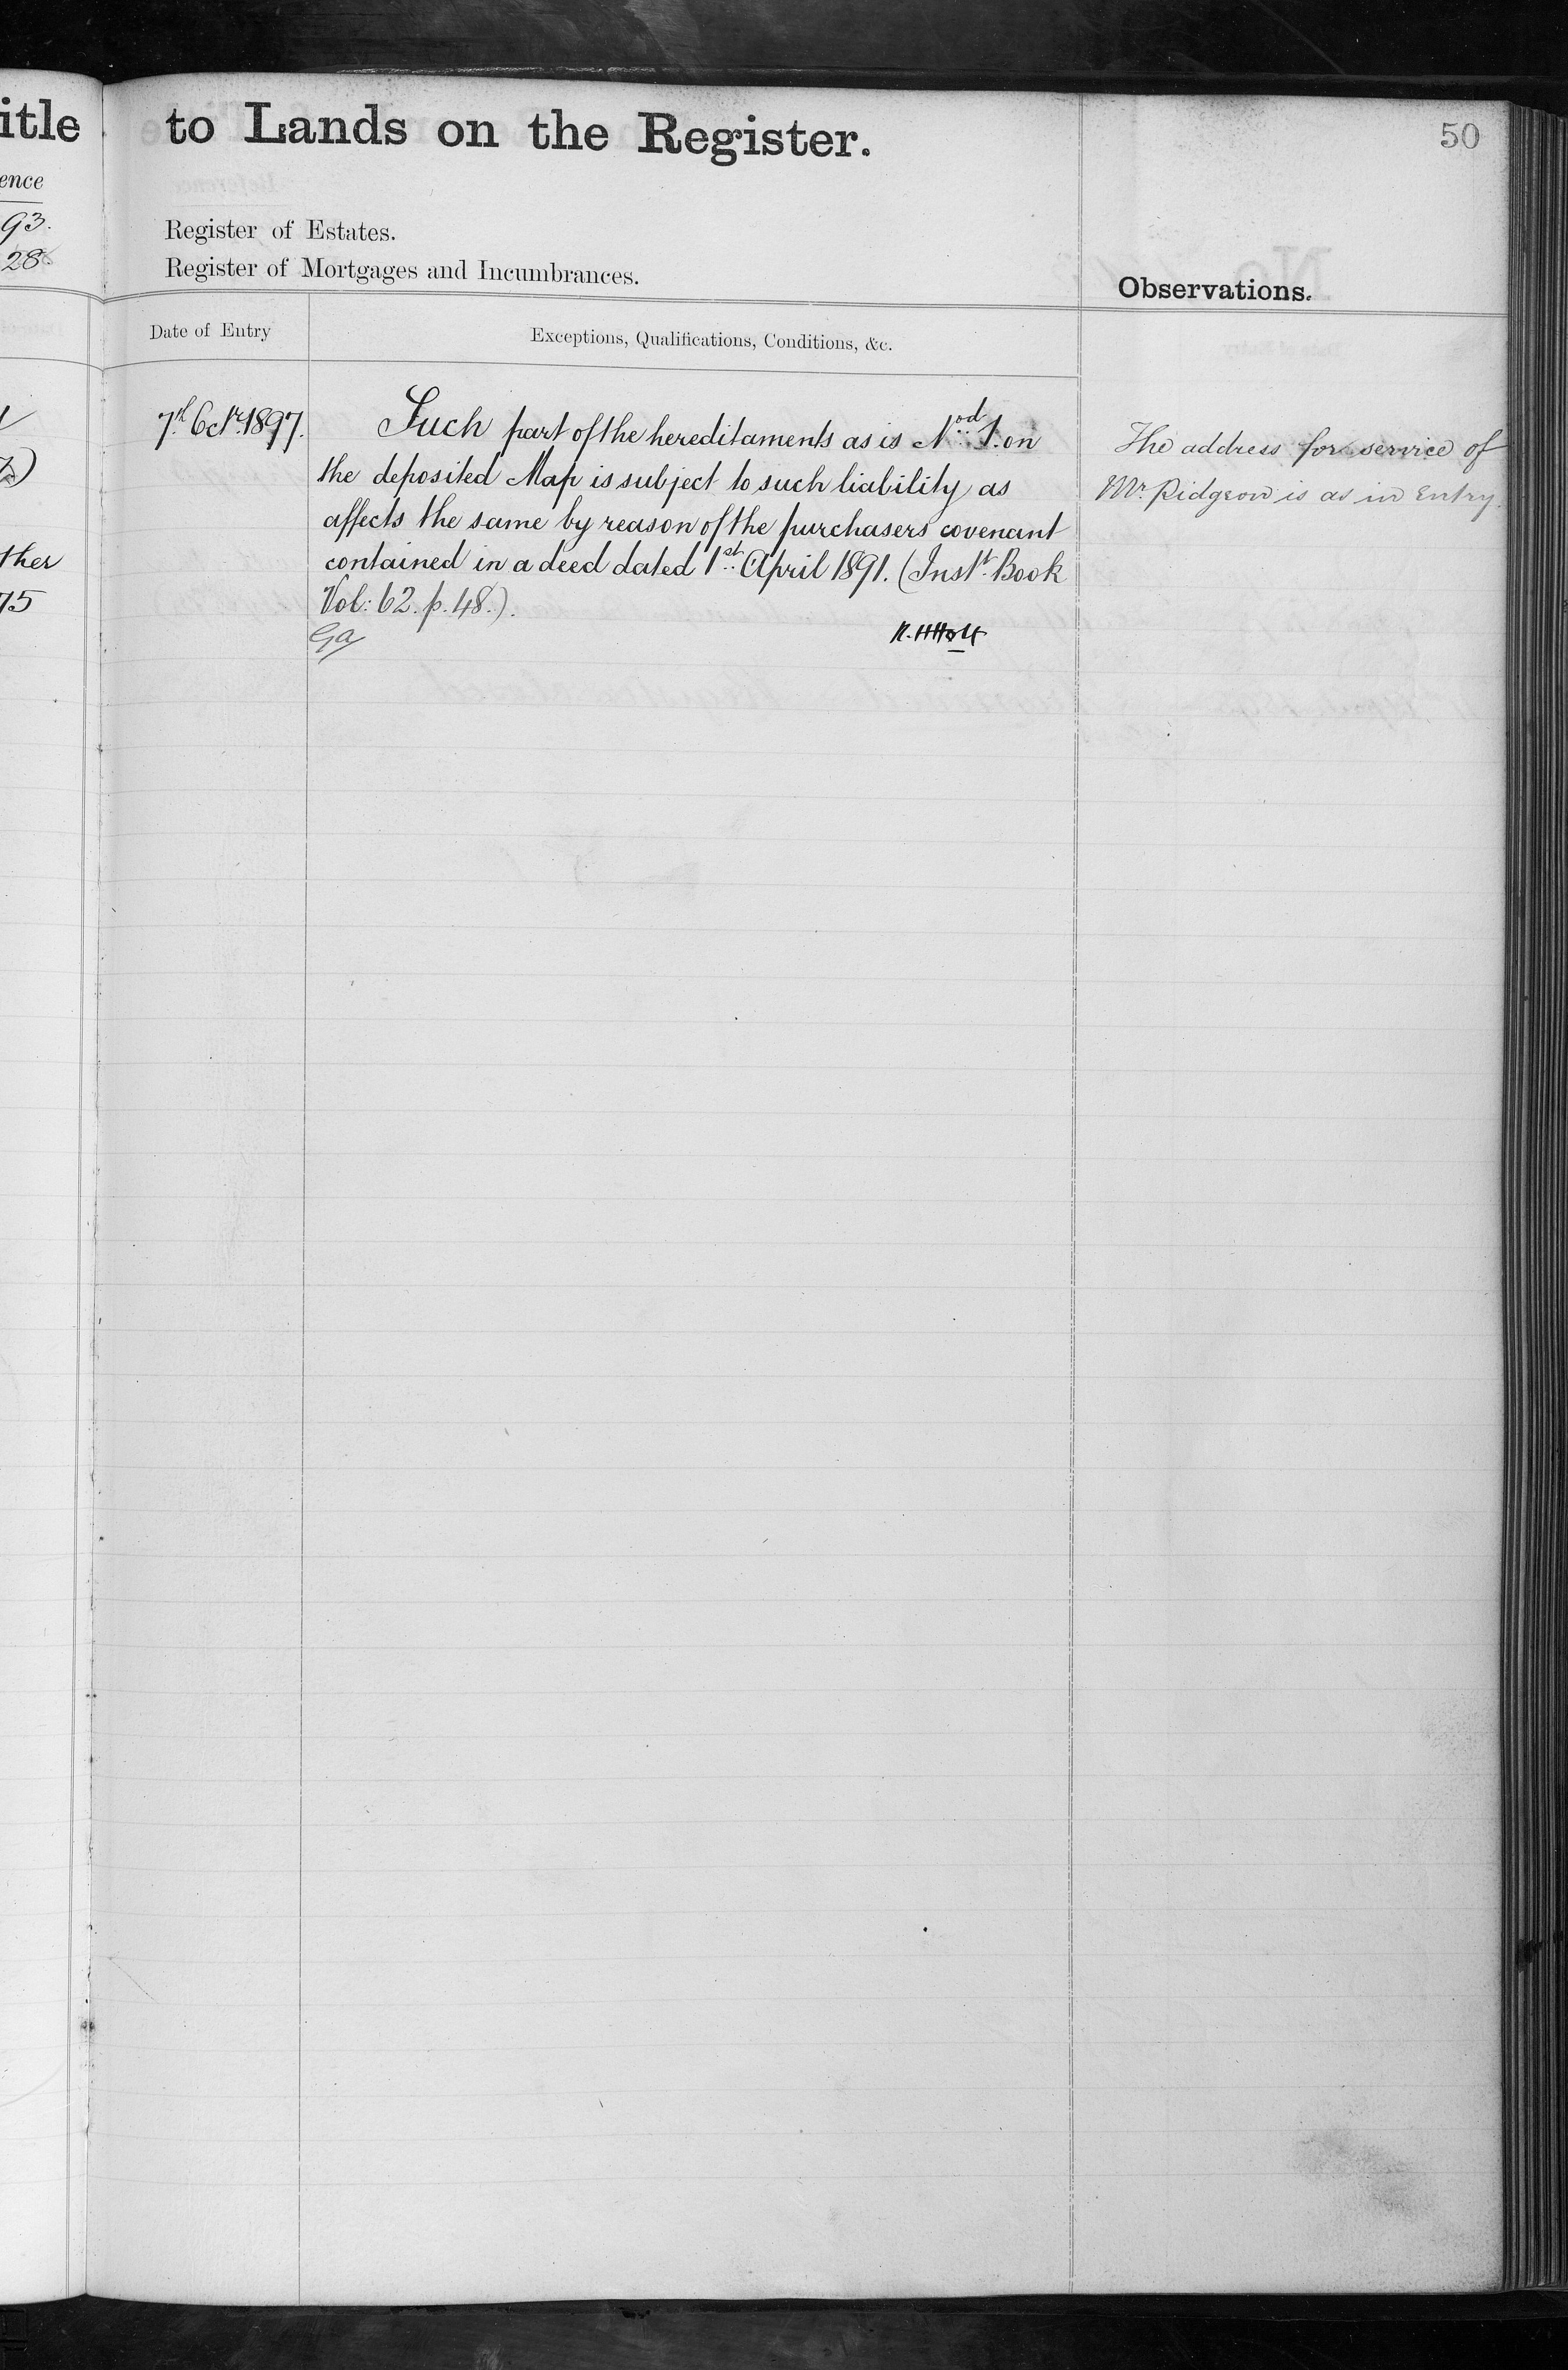 itle
ence
93.
28
ther
75
to Lands on the Register.
50
Register of Estates.
Register of Mortgages and Incumbrances.
Observations.
Date of Entry
Exceptions, Qualifications, Conditions, &c.
7th Octr. 1897.
Such part of the hereditaments as is Nod 1. on
the deposited Map is subject to such liability as
affects the same by reason of the purchasers covenant
contained in a deed dated 1st April 1891. (Instt. Book
Vol: 62. p. 48.).
R. H Holt
The address for service of
Mr. Pidgeon is as in Entry.